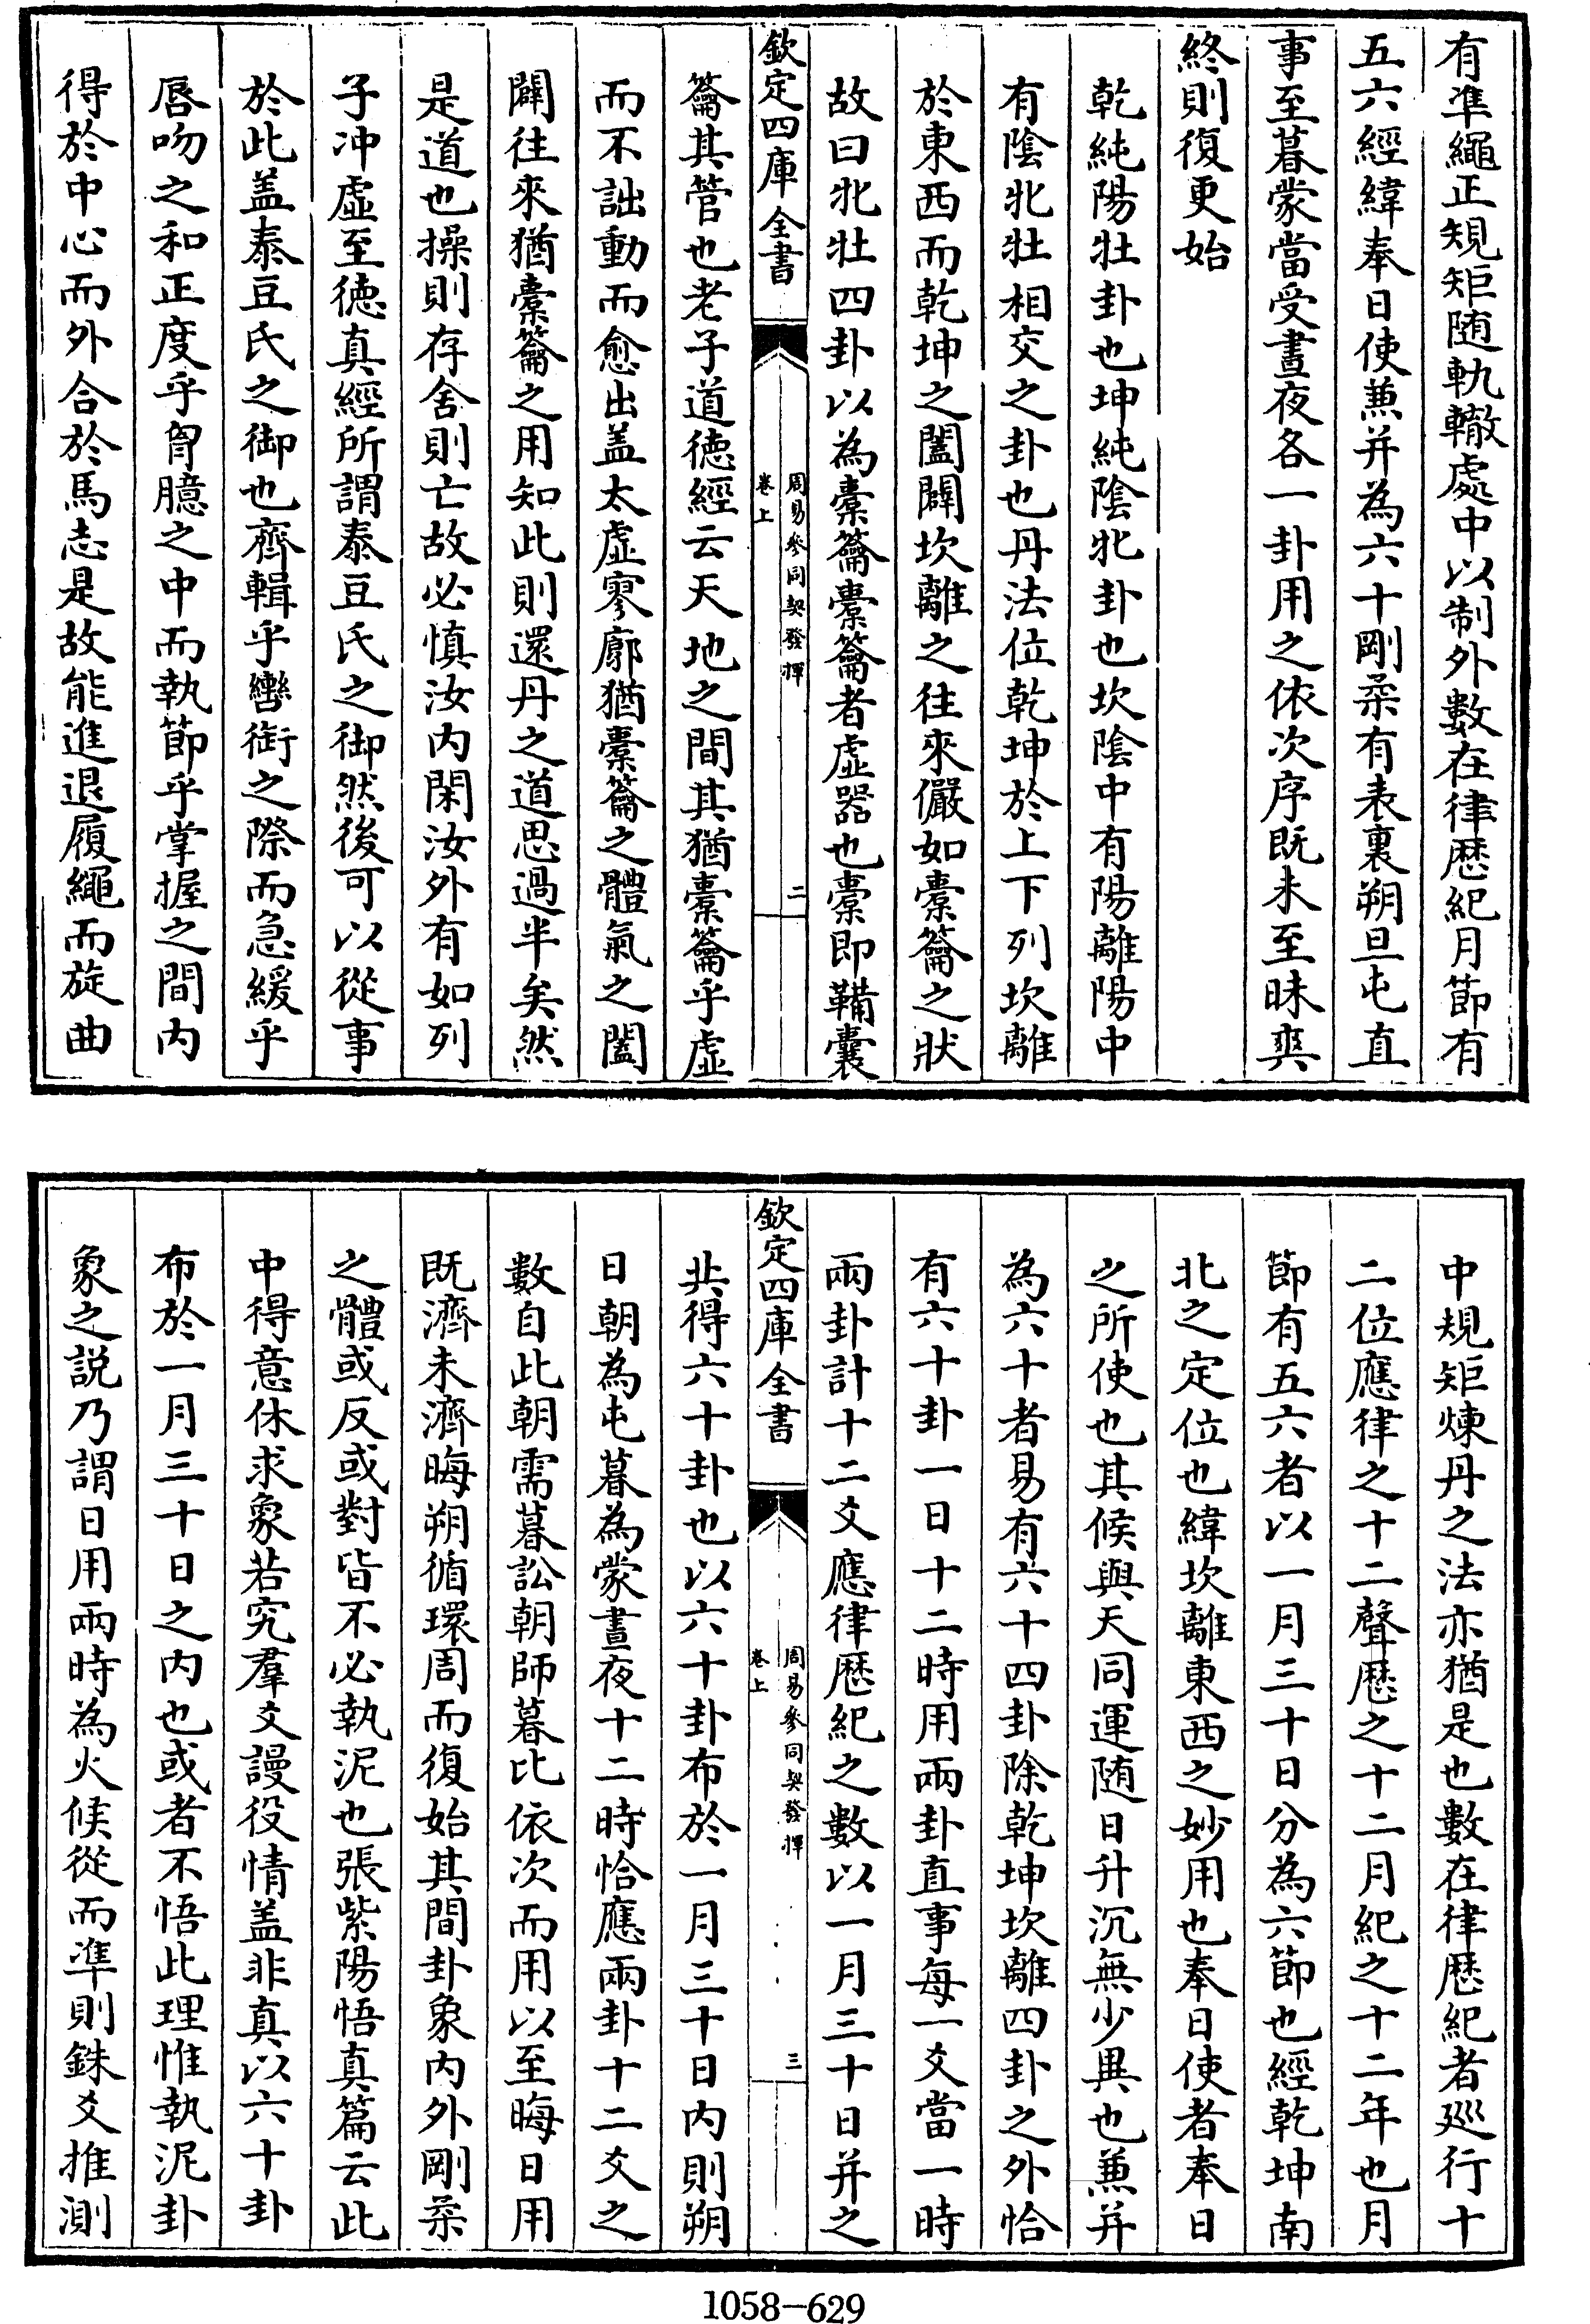 有準繩正規矩随軌轍處中以制外數在律歴紀月節有
五六經緯奉日使兼并為六十剛柔有表裏朔旦屯直
事至暮蒙當受晝夜各一卦用之依次序既未至昧爽
終則復更始
乾純陽牡卦也坤純陰牝卦也坎陰中有陽離陽中
有陰牝牡相交之卦也丹法位乾坤於上下列坎離
於東西而乾坤之闔闢坎離之往來儼如橐籥之狀
故曰牝牡四卦以為橐籥橐籥者虚器也橐即鞴囊
欽定四庫全書
周易參同契發揮
卷上
二
籥其管也老子道徳經云天地之間其猶橐籥乎虚
而不詘動而愈出盖太虚寥廓猶橐籥之體氣之闔
闢往來猶橐籥之用知此則還丹之道思過半矣然
是道也操則存舍則亡故必慎汝内閑汝外有如列
子冲虚至徳真經所謂泰豆氏之御然後可以從事
於此盖泰豆氏之御也齊輯乎轡銜之際而急緩乎
唇吻之和正度乎胷臆之中而執節乎掌握之間内
得於中心而外合於馬志是故能進退履繩而旋曲
中規矩煉丹之法亦猶是也數在律歴紀者廵行十
二位應律之十二聲歴之十二月紀之十二年也月
節有五六者以一月三十日分為六節也經乾坤南
北之定位也緯坎離東西之妙用也奉日使者奉日
之所使也其候與天同運随日升沉無少異也兼并
為六十者易有六十四卦除乾坤坎離四卦之外恰
有六十卦一日十二時用兩卦直事每一爻當一時
兩卦計十二爻應律歴紀之數以一月三十日并之
欽定四庫全書
周易參同契發揮
卷上
三
共得六十卦也以六十卦布於一月三十日内則朔
日朝為屯暮為蒙晝夜十二時恰應兩卦十二爻之
數自此朝需暮訟朝師暮比依次而用以至晦日用
既濟未濟晦朔循環周而復始其間卦象内外剛柔
之體或反或對皆不必執泥也張紫陽悟真篇云此
中得意休求象若究羣爻謾役情盖非真以六十卦
布於一月三十日之内也或者不悟此理惟執泥卦
象之説乃謂日用兩時為火候從而凖則銖爻推測
1058-629